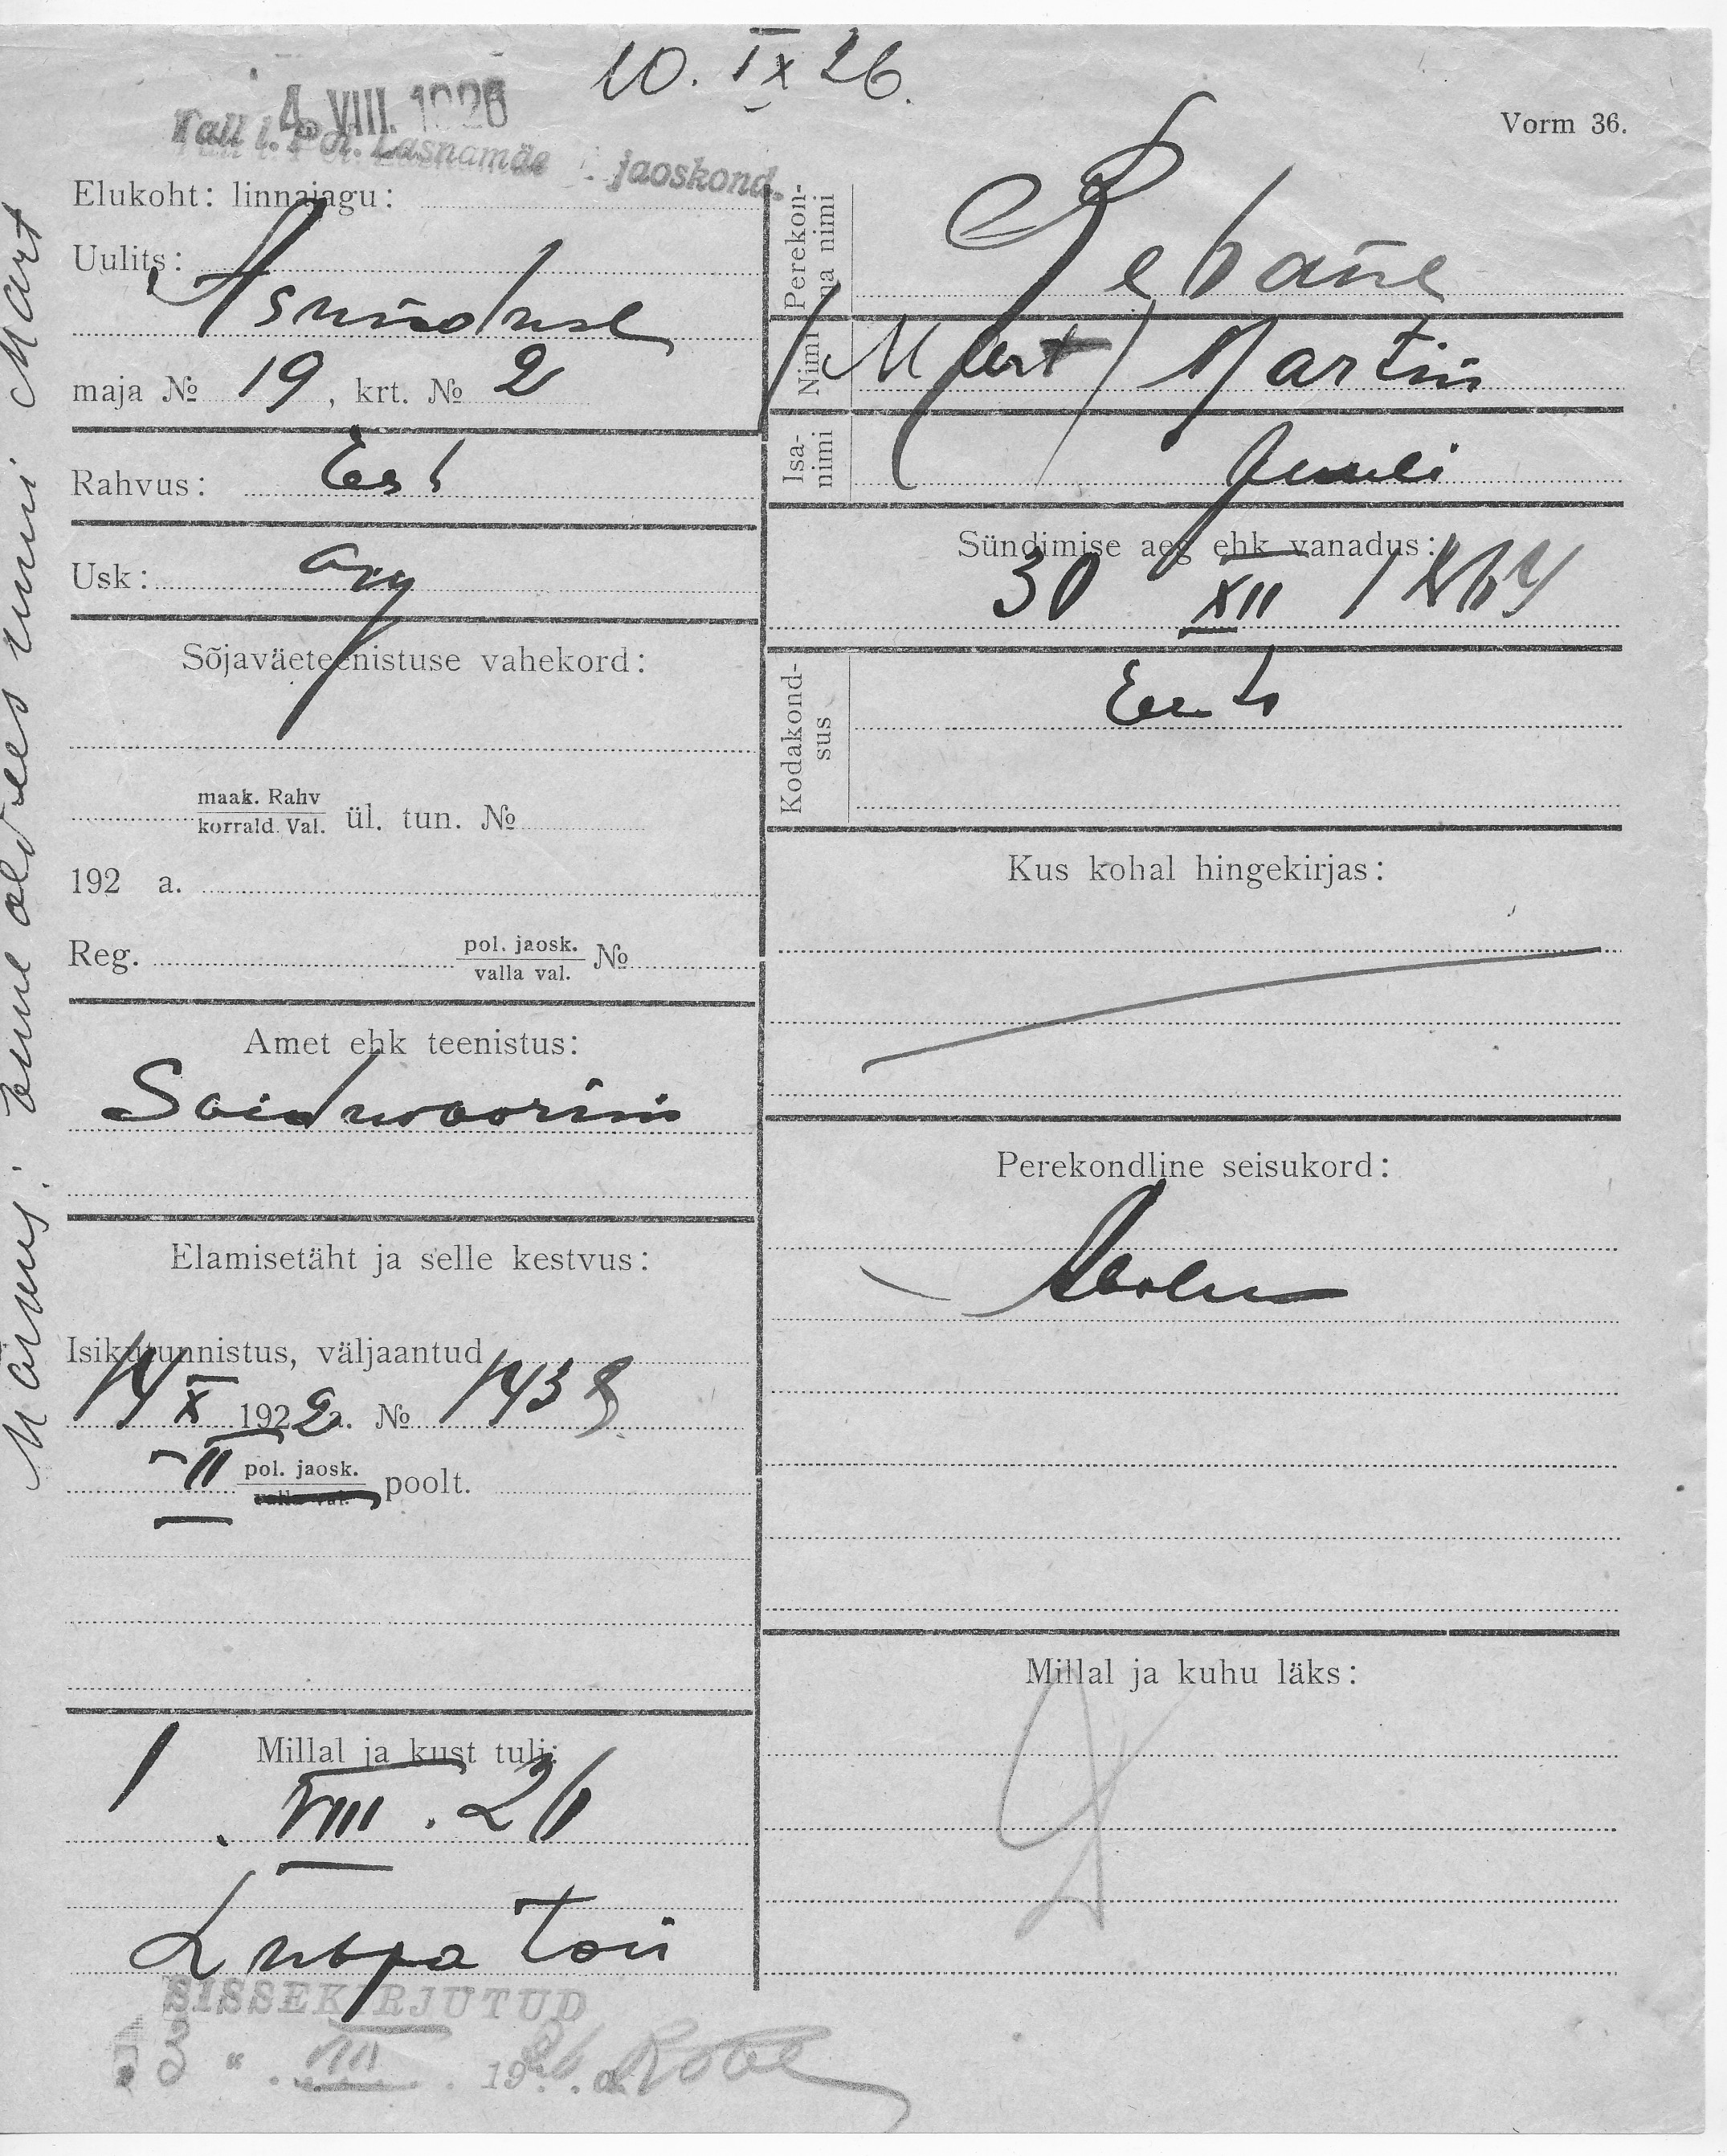 10. IX 26.
4. VIII. 1926
Tall l. Pol. Lasnamäe jaoskond.
Vorm 36.
Elukoht: linnajagu:
Uulits:
Asunduse
maja № 19, krt. № 2
Rahvus: Eest
Usk:
Sõjaväeteenistuse vahekord:
maak. Rahv
korrald. Val. ül. tun. №
192 a.
Reg. pol. jaosk.
valla val. №
Amet ehk teenistus:
Soiduwoorim
Elamisetäht ja selle kestvus:
Isikutunnistus, väljaantud
14 X 1922 a. № 1438
II pol. jaosk.
valla val. poolt.
Millal ja kust tuli:
1. VIII. 26
SISSEKIRJUTUD
3 " VIII. 1926 a.
Perekonna nimi Rebane
Nimi (Mart) Martin
Isanimi
Sündimise aeg ehk vanadus:
30 XII 1864
Kodakondsus
Eesti
Kus kohal hingekirjas:
Perekondline seisukord:
Millal ja kuhu läks:
Märkus: Enne oldves nimi Mart